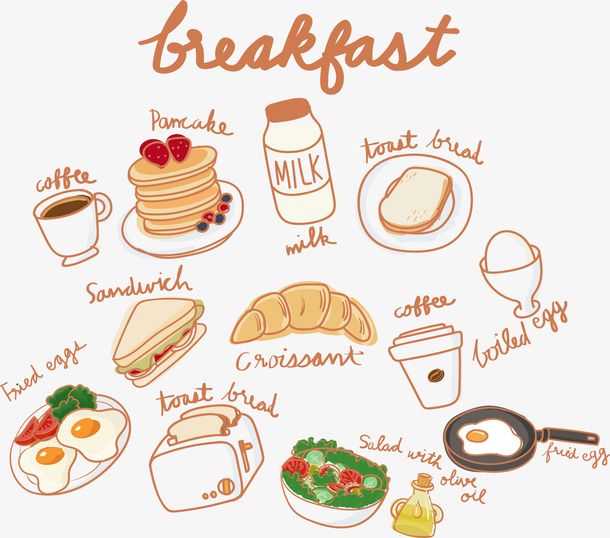 breakfast
Pancake
coffee
MILK
milk
toast bread
Sandwich
Croissant
coffee
boiled egg
Fried eggs
toast bread
Salad with
olive
oil
fried egg